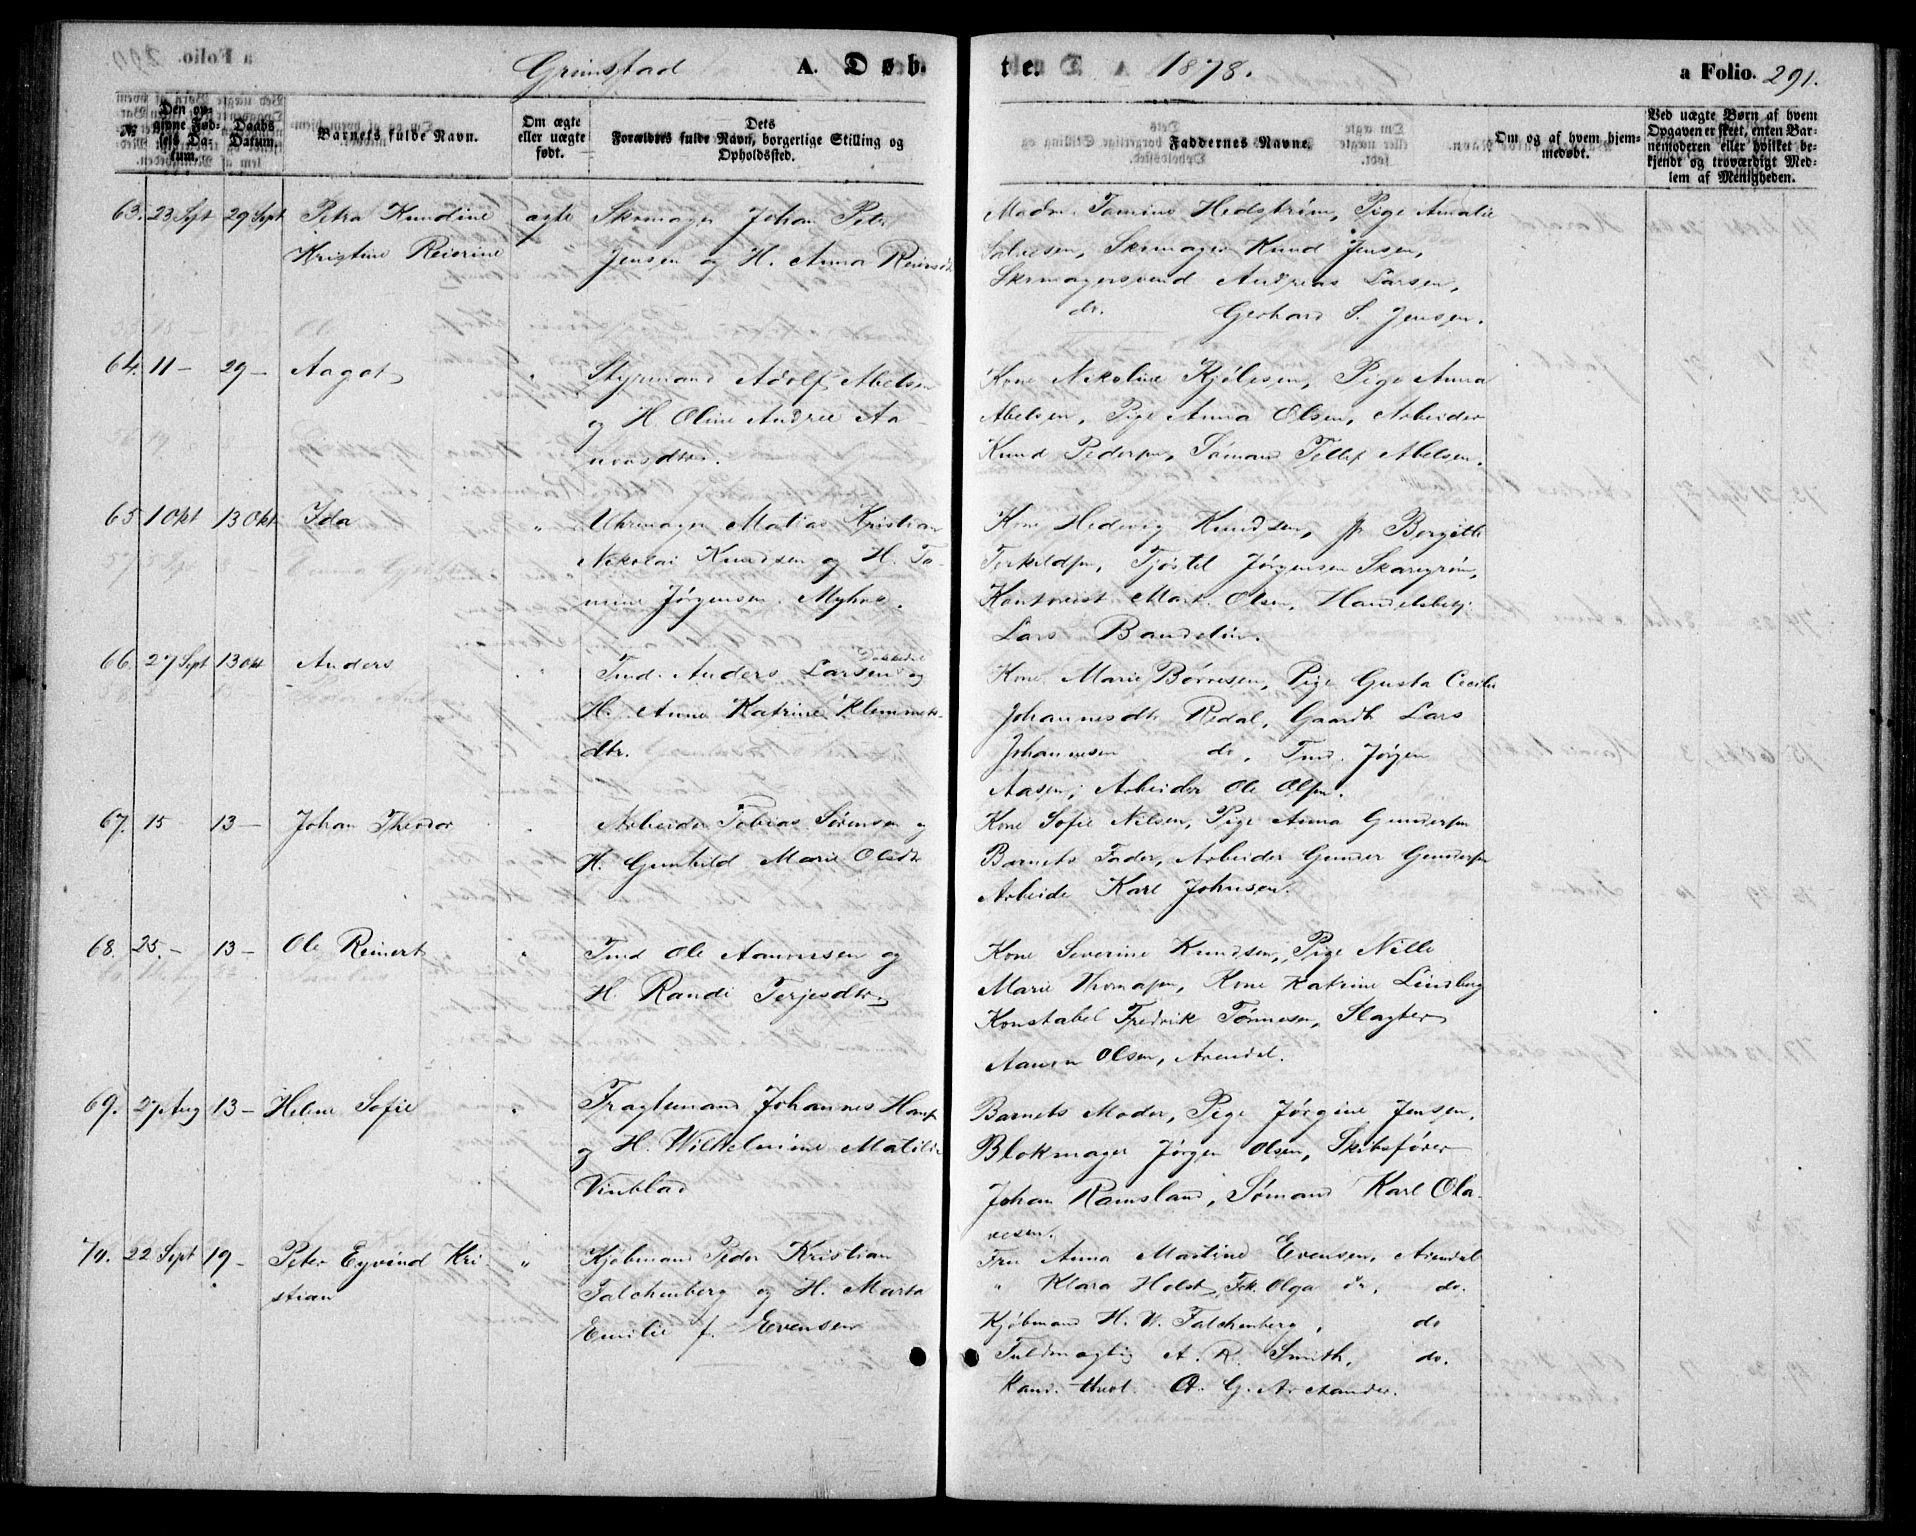 Grimstad A. Døbte. 1878. a Folio. 291.
№ Den opgivne Fødsels Datum. Daabs Datum. Barnets fulde Navn. Om ægte eller uægte født. Dets Forældres fulde Navn, borgerlige Stilling og Opholdssted. Faddernes Navne. Om og af hvem hjemmedøbt. Ved uægte Børn af hvem Opgaven er skeet, enten Barnemoderen eller hvilket bekjendt og troværdigt Medlem af Menigheden.
63. 23 Sept 29 Sept Petra Kundine ægte Skomager Johan Peter
Kristine Reierine Jensen og H. Anna Reiersdt
Madm. Tomine Hedstrøm, Pige Amalie
Salvesen, Skomager Knud Jensen,
Skomagersvend Andreas Larsen,
do. Gerhard S. Jensen.
64. 11 — 29 — Aagot " Styrmand Adolf Abelsen
og H. Oline Andrea Aa-
norsdtr.
Kone Nikoline Kjølesen, Pige Anna
Abelsen, Pige Anna Olsen, Arbeider
Knud Pedersen, Sømand Tellef Abelsen.
65 1 Okt 13 Okt Ida " Uhrmager Matias Kristian
Nikolai Knudsen og H. To-
mine Jørgensen. Myhre.
Kone Hedevig Knudsen, Borgitte
Terkildsen, Tjøstel Jørgensen Skaregrøm,
Kontorist Mart. Olsen, Handelsbetj.
Lars Bandelin.
66. 27 Sept 13 Okt Anders " Tmd. Anders Larsen og
H. Anne Katrine Klemmets-
dtr.
Kone Marie Børresen, Pige Gusta Cecilie
Johannesdtr Redal, Gaardb Lars
Johannesen do, Tmd. Jørgen
Aasen, Arbeider Ole Olsen.
67. 15 13 — Johan Theodor " Arbeider Tobias Sørensen og
H. Gunhild Marie Olsdtr
Kone Sofie Nilsen, Pige Anna Gundersen
Barnets Fader, Arbeider Gunder Gundersen
Arbeider Karl Johnsen.
68. 25. — 13 — Ole Reinert " Tmd Ole Aanonsen og
H. Randi Terjesdtr
Kone Severine Knudsen, Pige Nille
Marie Thomassen, Kone Katrine Lindberg
Konstabel Fredrik Tønnesen, Slagter
Aanon Olsen, Arendal.
69. 27 Aug 13 — Helene Sofie " Fragtemand Johannes Hans
og H. Wilhelmine Matilde
Vinblad
Barnets Moder, Pige Jørgine Jensen,
Blokmager Jørgen Olsen, Skibsfører
Johan Ramsland, Sømand Karl Ola-
vesen.
70. 22 Sept 19 — Peter Eyvind Kri " Kjøbmand Peder Kristian
stian Falchenberg og H. Marta
Emilie f. Evensen
Fru Anna Martine Evensen, Arendal
" Klara Holst, Frk. Olga do, do.
Kjøbmand H. W. Falchenberg, do
Fuldmægtig A. R. Smith, do.
Kand. theol. O. G. Arctander.